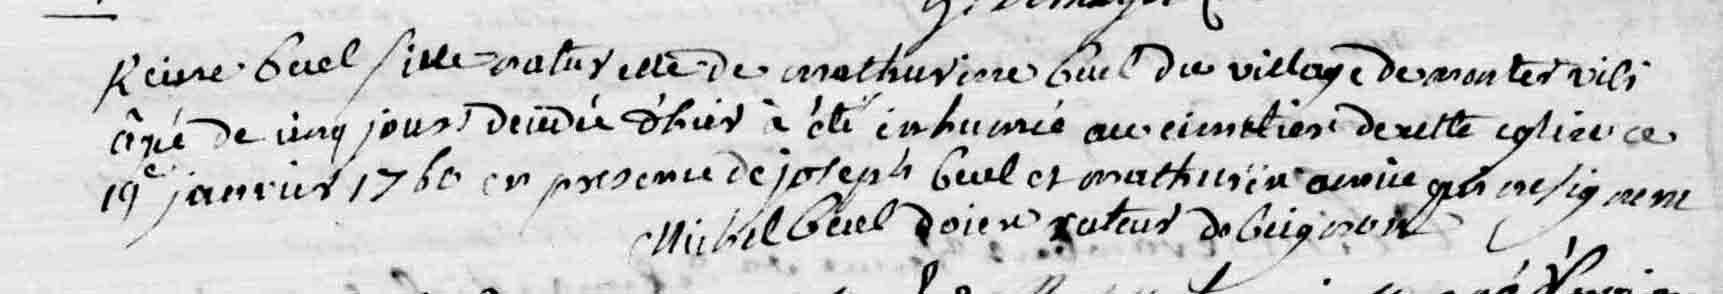 Reine buel fille naturelle de mathurine buel du village de montervili
âgé de cinq jours decedée d'hier à été inhumée au cimetiere de cette eglise ce
19e janvier 1760 en presence de joseph buel et mathurin qui ne signent
Michel buel doien recteur de beignon